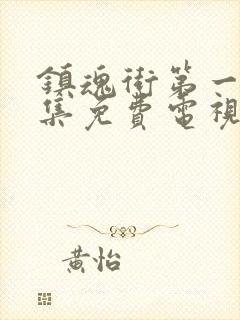 鎮魂街第一
集免費電視
黃怡